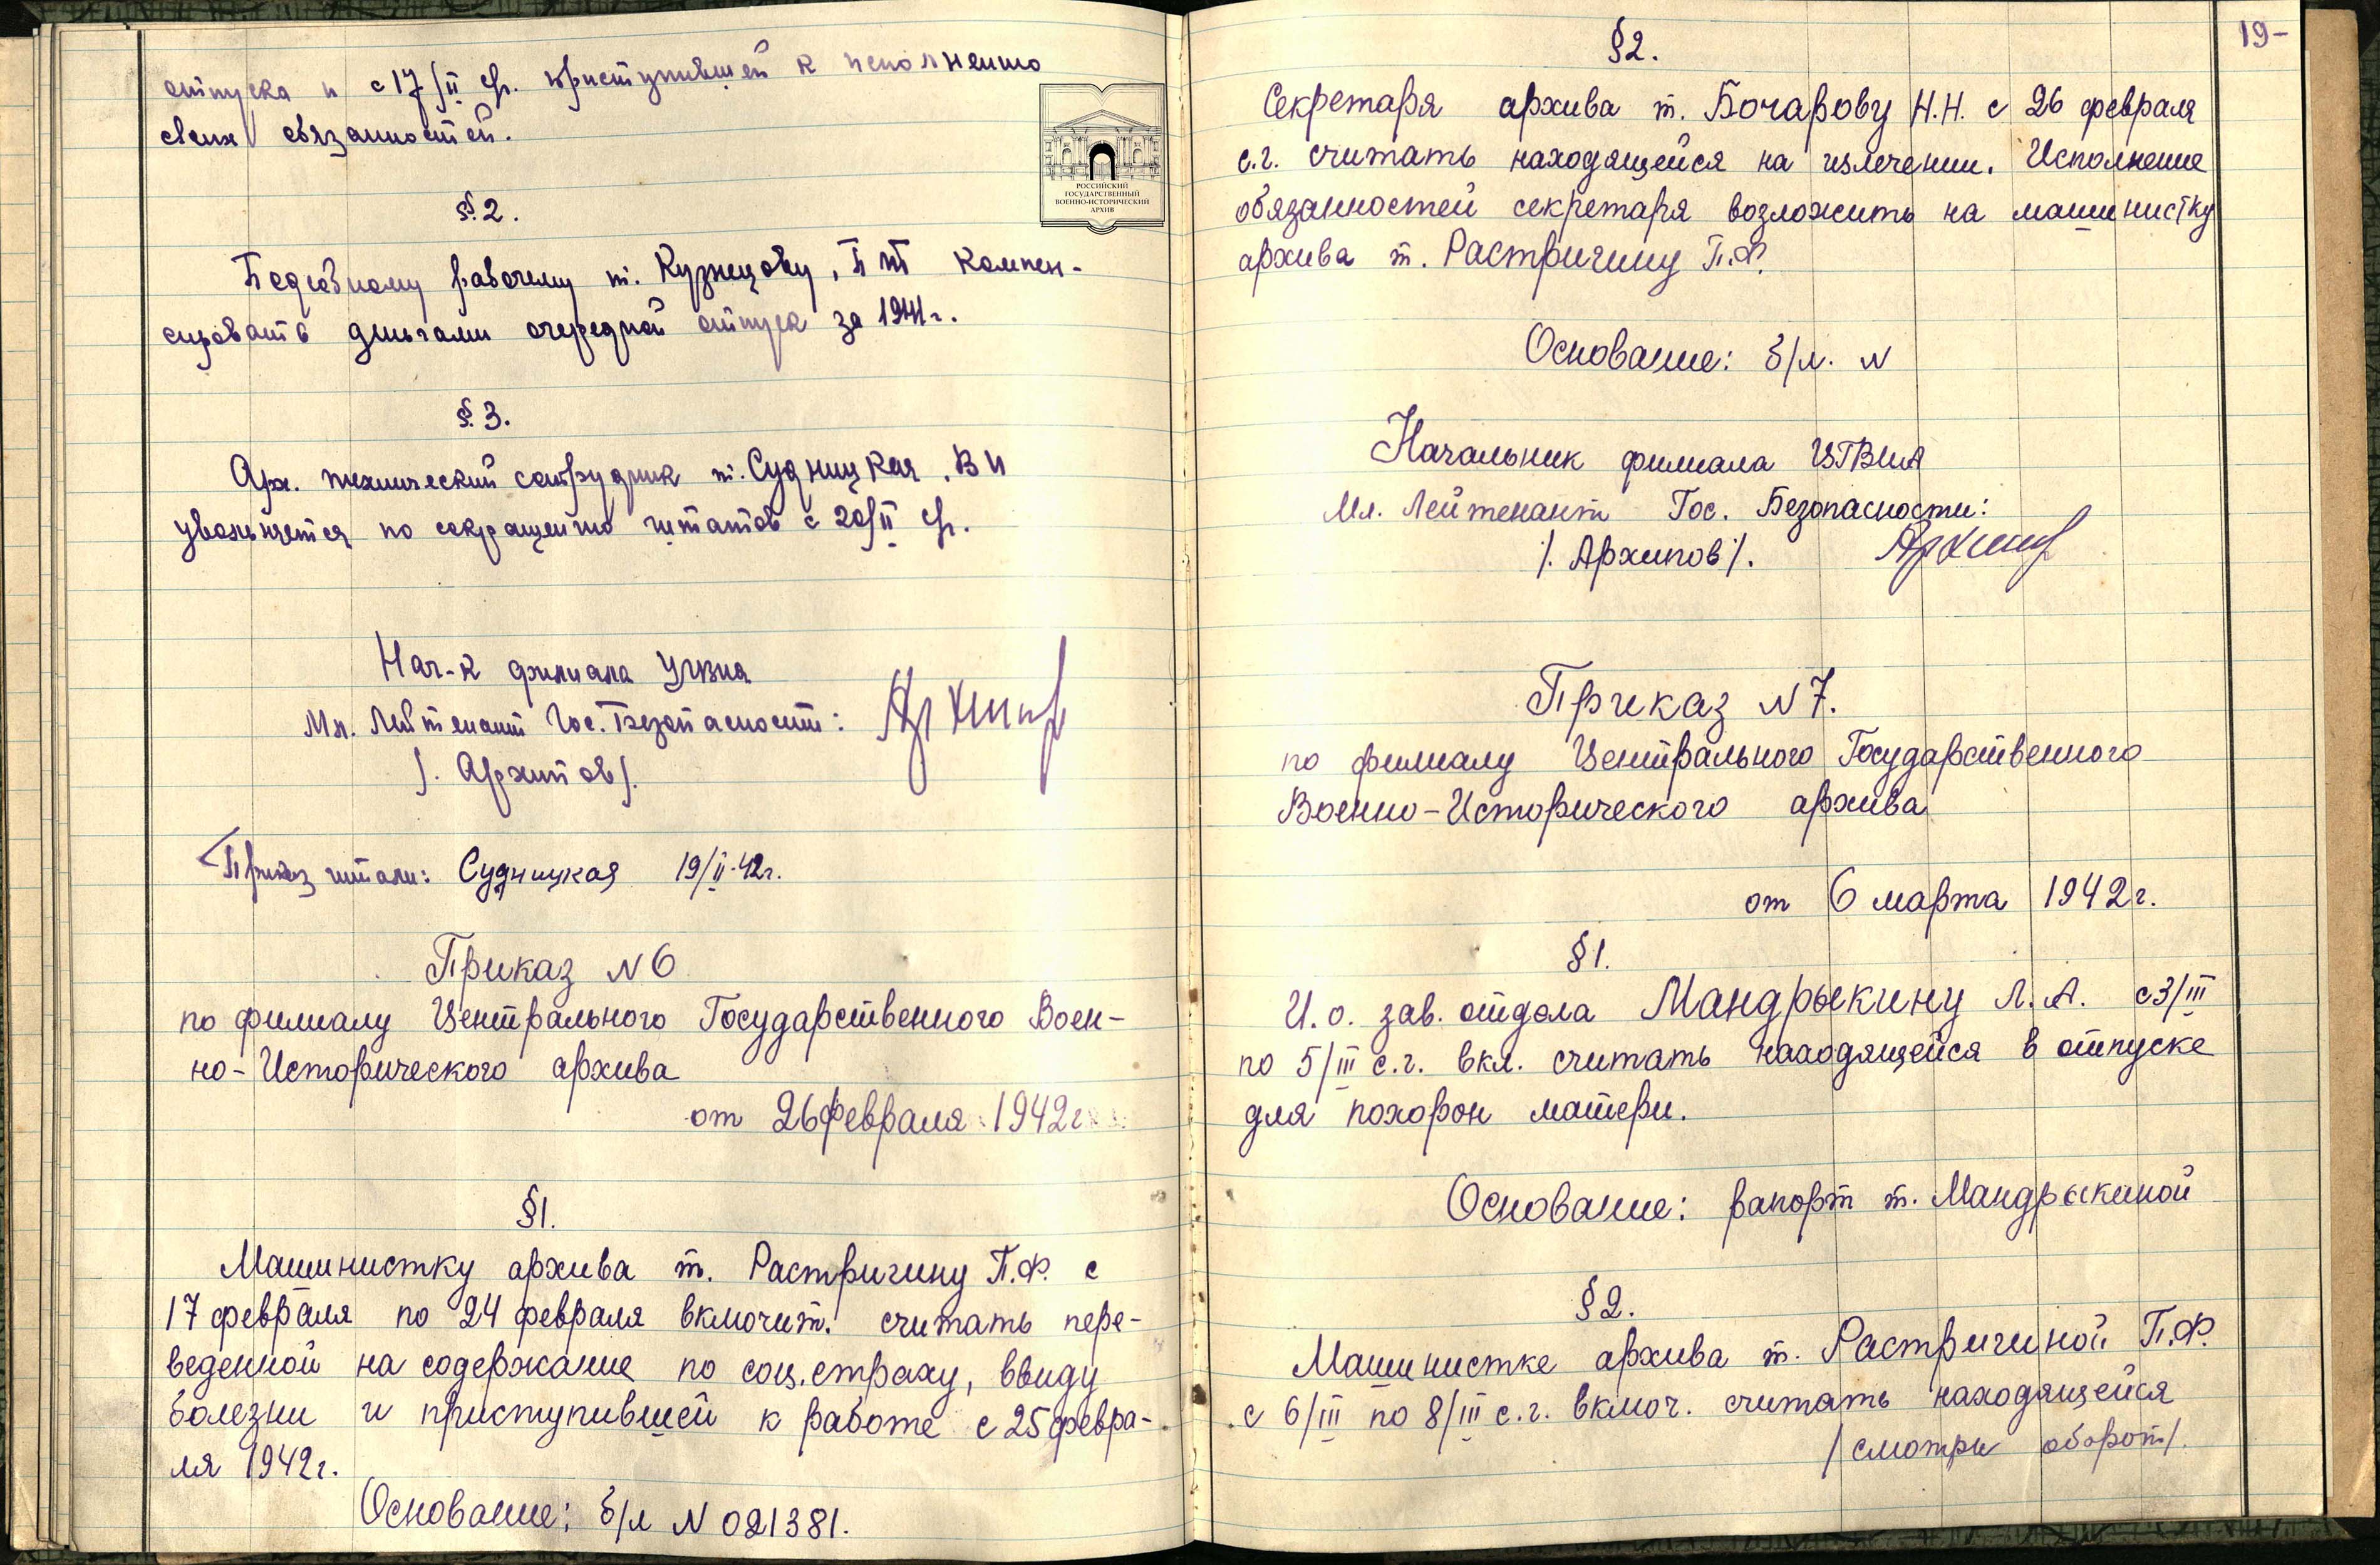 отпуска и с 17/II с/г. приступившей к исполнению
своих обязанностей.
§.2.
Подсобному рабочему т. Кузнецову, П Т компен-
сировать деньгами очередной отпуск за 1941г.
§.3.
Арх. технический сотрудник т. Судницкая. В И
увольняется по сокращению штатов с 20/II с/г.
Нач-к филиала ЦГВИА
Мл. Лейтенант Гос. Безопасности:
/. Архипов/.
Приказ читали: Судницкая 19/II-42г.
Приказ N 6
по филиалу Центрального Государственного Воен-
но-Исторического архива
от 26 февраля 1942г
§1.
Машинистку архива т. Растригину П.Ф. с
17 февраля по 24 февраля включит. считать пере-
веденной на содержание по соц.страху, ввиду
болезни и приступившей к работе с 25 февра-
ля 1942г.
Основание: б/л N 021381.
РОССИЙСКИЙ
ГОСУДАРСТВЕННЫЙ
ВОЕННО-ИСТОРИЧЕСКИЙ
АРХИВ
19-
§2.
Секретаря архива т. Бочарову Н.Н. с 26 февраля
с.г. считать находящейся на излечении. Исполнение
обязанностей секретаря возложить на машинистку
архива т. Растригину П.Ф.
Основание: б/л. N
Начальник филиала ЦГВИА
Мл. Лейтенант Гос. Безопасности:
/. Архипов/. Архипов
Приказ N 7.
по филиалу Центрального Государственного
Военно-Исторического архива
от 6 марта 1942г.
§1.
И.о. зав. отдела Мандрыкину Л.А. с 3/III
по 5/III с.г. вкл. считать находящейся в отпуске
для похорон матери.
Основание: рапорт т. Мандрыкиной
§2.
Машинистке архива т. Растригиной П.Ф.
с 6/III по 8/III с.г. включ. считать находящейся
/смотри оборот/.